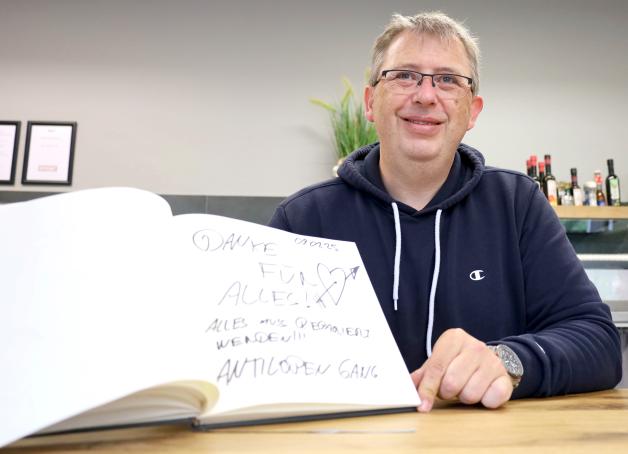 DANKE
FÜR
ALLES!
ALLES MUSS REPARIERT
WERDEN!!!
ANTILOPEN GANG